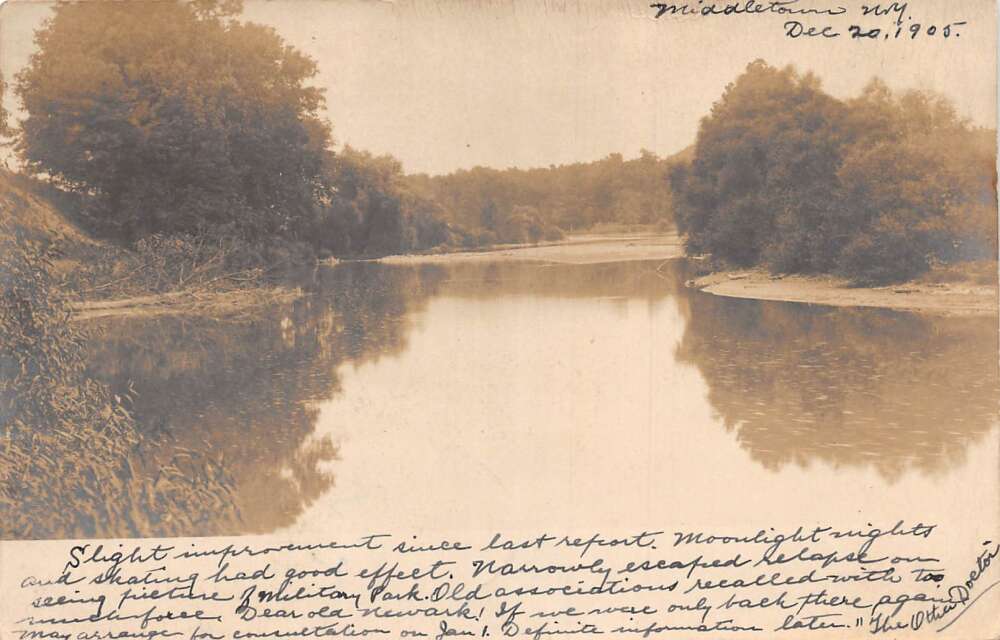 Middletown N.Y.
Dec 20, 1905.
Slight improvement since last report. Moonlight nights
and skating had good effect. Narrowly escaped relapse on
seeing picture of Military Park. Old associations recalled with too
much force. Dear old Newark! If we were only back there again
May arrange for consultation on Jan 1. Definite information later."
"The Other Doctor"